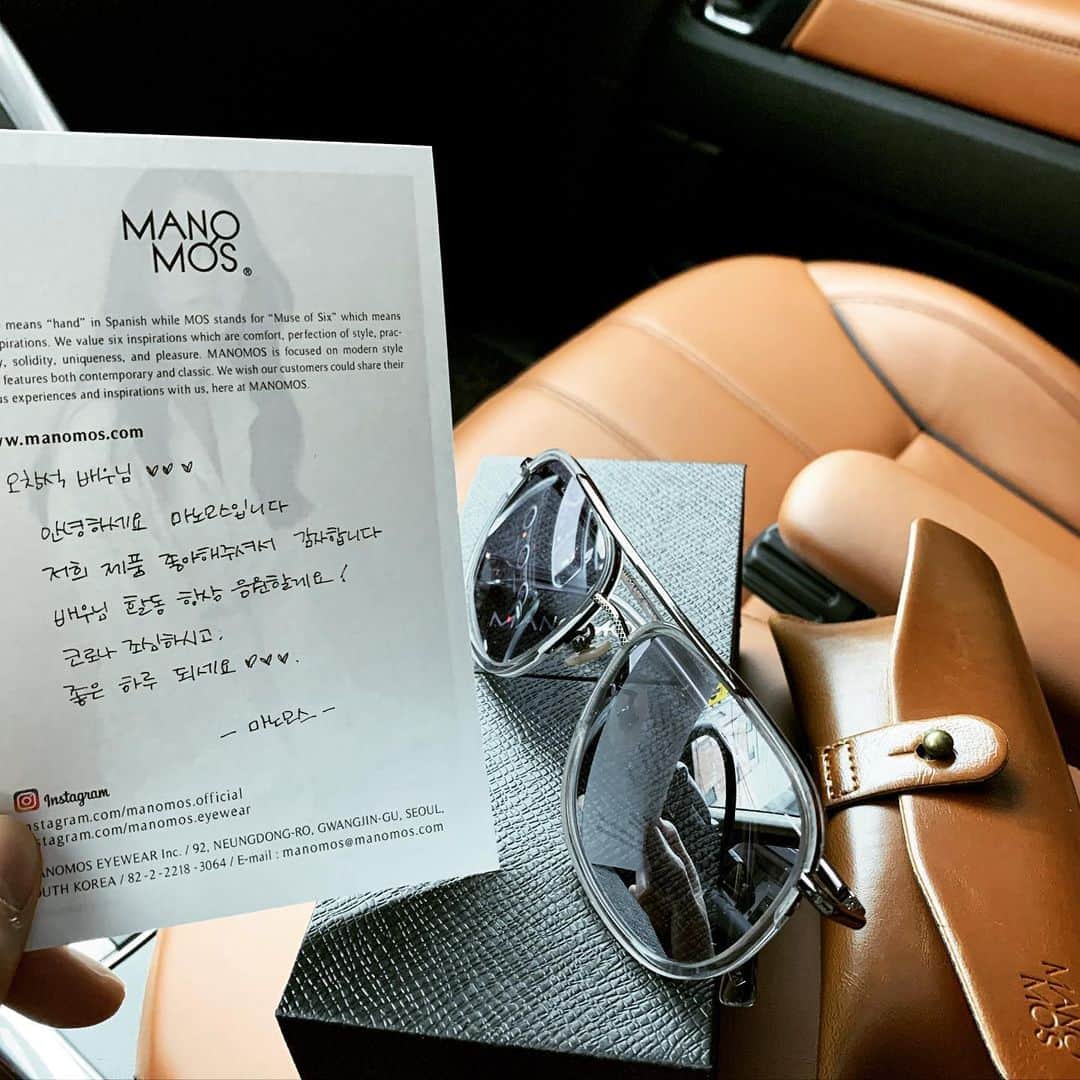 MANO
MOS®
means “hand” in Spanish while MOS stands for “Muse of Six” which means
pirations. We value six inspirations which are comfort, perfection of style, prac-
y, solidity, uniqueness, and pleasure. MANOMOS is focused on modern style
features both contemporary and classic. We wish our customers could share their
us experiences and inspirations with us, here at MANOMOS.
ww.manomos.com
오창석 배우님 ♡♡♡
안녕하세요 마노모스입니다
저희 제품 좋아해주셔서 감사합니다
배우님 활동 항상 응원할게요!
코로나 조심하시고,
좋은 하루 되세요 ♡♡♡.
- 마노모스 -
Instagram
nstagram.com/manomos.official
stagram.com/manomos.eyewear
ANOMOS EYEWEAR Inc. / 92, NEUNGDONG-RO, GWANGJIN-GU, SEOUL,
OUTH KOREA / 82-2-2218-3064 / E-mail : manomos@manomos.com
MANO
MOS